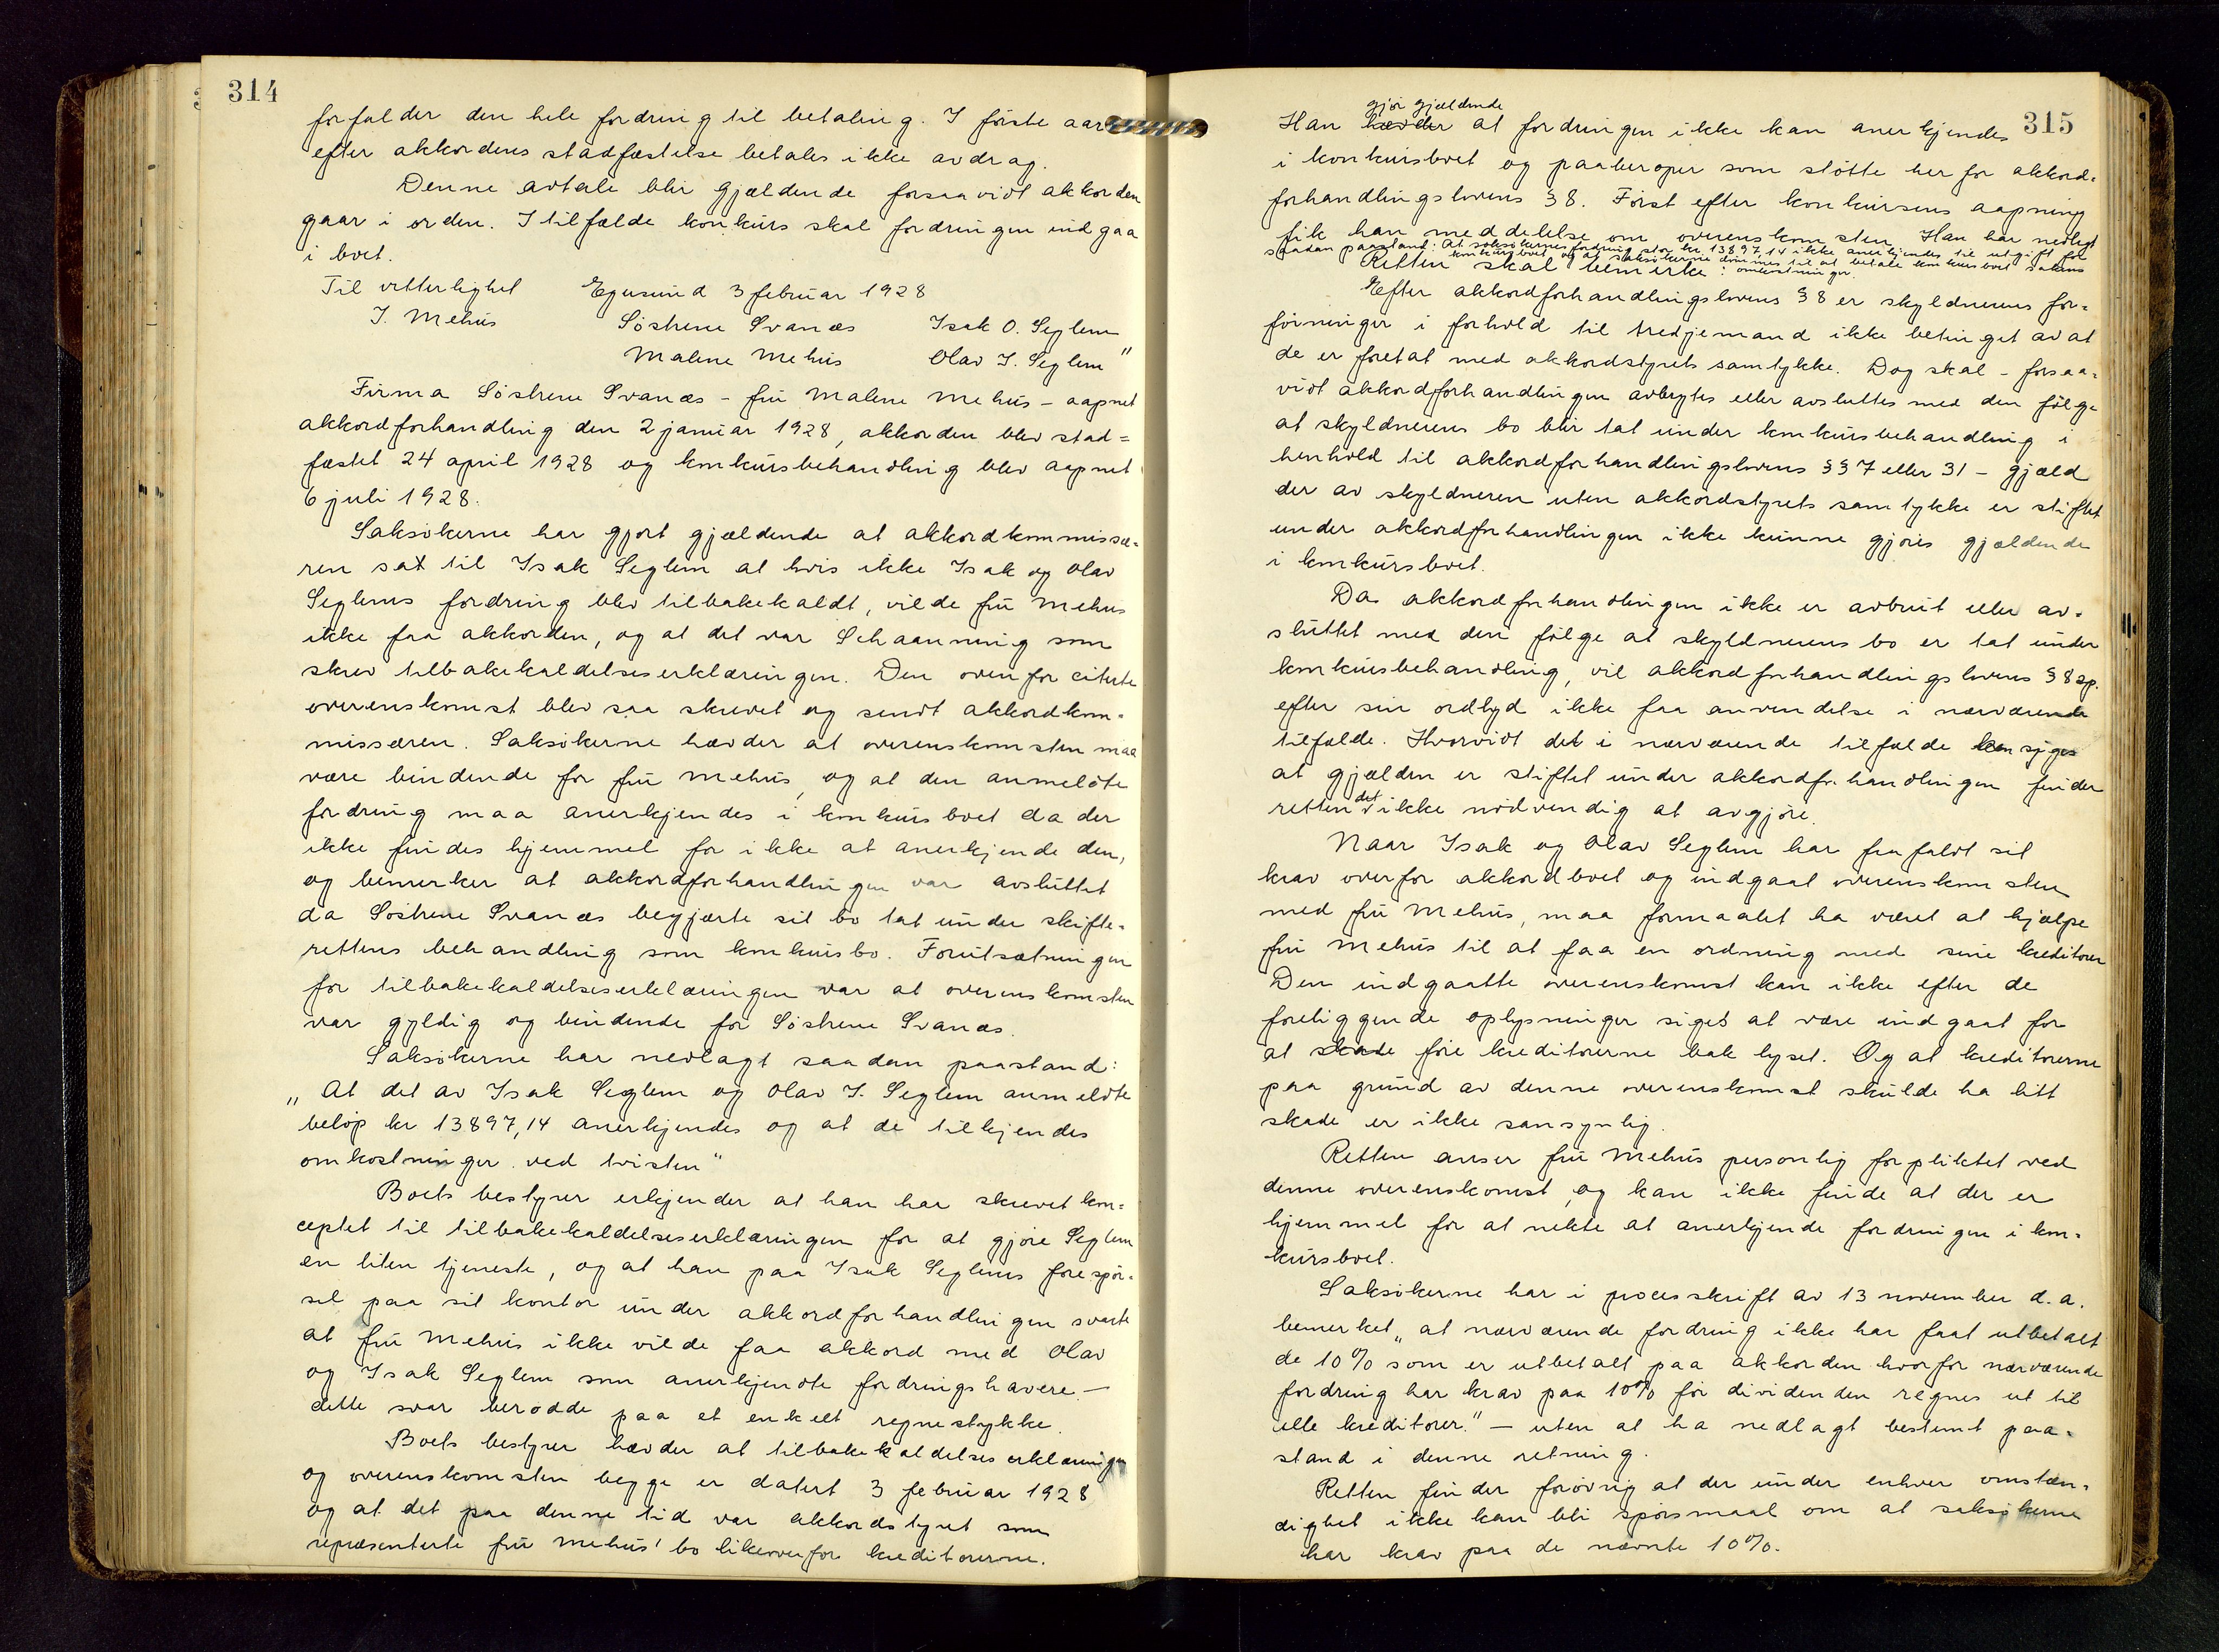 314
forfalder den hele fordring til betaling. I første aar
efter akkordens stadfæstelse betales ikke avdrag.
Denne avtale blir gjældende forsaavidt akkorden
gaar i orden. I tilfælde konkurs skal fordringen indgaa
i boet.
Til vitterlighet Egersund 3 februar 1928
I. Mehus Søstrene Svanæs Isak O. Seglem
Malene Mehus Olav I. Seglem"
Firma Søstrene Svanæs - fru Malene Mehus - aapnet
akkordforhandling den 2 januar 1928, akkorden blev stad=
fæstet 24 april 1928 og konkursbehandling blev aapnet
6 juli 1928.
Saksøkerne har gjort gjældende at akkordkommissæ=
ren sat til Isak Seglem at hvis ikke Isak og Olav
Seglems fordring blev tilbakekaldt, vilde fru Mehus
ikke faa akkorden, og at det var Schaanning som
skrev tilbakekaldelseserklæringen. Den ovenfor citerte
overenskomst blev saa skrevet og sendt akkordkom=
missæren. Saksøkerne hævder at overenskomsten maa
være bindende for fru Mehus, og at den anmeldte
fordring maa anerkjendes i konkursboet da der
ikke findes hjemmel for ikke at anerkjende den,
og bemerker at akkordforhandlingen var avsluttet
da Søstrene Svanæs begjærte sit bo tat under skifte=
rettens behandling som konkursbo. Forutsætningen
for tilbakekaldelseserklæringen var at overenskomsten
var gyldig og bindende for Søstrene Svanæs.
Saksøkerne har nedlagt saadan paastand:
„At det av Isak Seglem og Olav I. Seglem anmeldte
beløp kr 13897,14 anerkjendes og at de tilkjendes
omkostninger ved tvisten"
Boets bestyrer erkjender at han har skrevet kon=
ceptet til tilbakekaldelseserklæringen for at gjøre Seglem
en liten tjeneste, og at han paa Isak Seglems forespør=
sel paa sit kontor under akkordforhandlingen svarte
at fru Mehus ikke vilde faa akkord med Olav
og Isak Seglem som anerkjendte fordringshavere —
dette svar berodde paa et enkelt regnestykke.
Boets bestyrer hævder at tilbakekaldelseserklæringen
og overenskomsten begge er datert 3 februar 1928
og at det paa denne tid var akkordstyret som
repræsenterte fru Mehus' bo likeoverfor kreditorerne.
315
gjør gjældende
Han hævder at fordringen ikke kan anerkjendes
i konkursboet og paaberoper som støtte her for akkord=
forhandlingslovens § 8. Først efter konkursens aapning
fik han meddelelse om overenskomsten. Han har nedlagt
saadan paastand: At saksøkernes fordring stor kr. 13897,14 ikke anerkjendes til utgift for
konkursboet og at saksøkerne dømmes til at betale konkursboet sakens
omkostninger.
Retten skal bemerke:
Efter akkordforhandlingslovens § 8 er skyldnerens for=
føininger i forhold til tredjemand ikke betinget av at
de er foretat med akkordstyrets samtykke. Dog skal - forsaa=
vidt akkordforhandlingen avbrytes eller avsluttes med den følge
at skyldnerens bo blir tat under konkursbehandling i
henhold til akkordforhandlingslovens §§ 7 eller 31 - gjæld
der av skyldneren uten akkordstyrets samtykke er stiftet
under akkordforhandlingen ikke kunne gjøres gjældende
i konkursboet.
Da akkordforhandlingen ikke er avbrut eller av=
sluttet med den følge at skyldnerens bo er tat under
konkursbehandling, vil akkordforhandlingslovens § 8 2p.
efter sin ordlyd ikke faa anvendelse i nærværende
tilfælde. Hvorvidt det i nærværende tilfælde kan siges
at gjælden er stiftet under akkordforhandlingen finder
retten det ikke nødvendig at avgjøre.
Naar Isak og Olav Seglem har frafaldt sit
krav overfor akkordboet og indgaat overenskomsten
med fru Mehus, maa formaalet ha været at hjælpe
fru Mehus til at faa en ordning med sine kreditorer
Den indgaatte overenskomst kan ikke efter de
foreliggende oplysninger siges at være indgaat for
at skade føre kreditorerne bak lyset. Og at kreditorerne
paa grund av denne overenskomst skulde ha litt
skade er ikke sansynlig.
Retten anser fru Mehus personlig forpliktet ved
denne overenskomst, og kan ikke finde at der er
hjemmel for at nekte at anerkjende fordringen i kon=
kursboet.
Saksøkerne har i processkrift av 13 november d.a.
bemerket „at nærværende fordring ikke har faat utbetalt
de 10% som er utbetalt paa akkorden hvorfor nærværende
fordring har krav paa 10% før dividenden regnes ut til
alle kreditorer." — uten at ha nedlagt bestemt paa=
stand i denne retning.
Retten finder forøvrig at der under enhver omstæn=
dighet ikke kan bli spørsmaal om at saksøkerne
har krav paa de nævnte 10%.